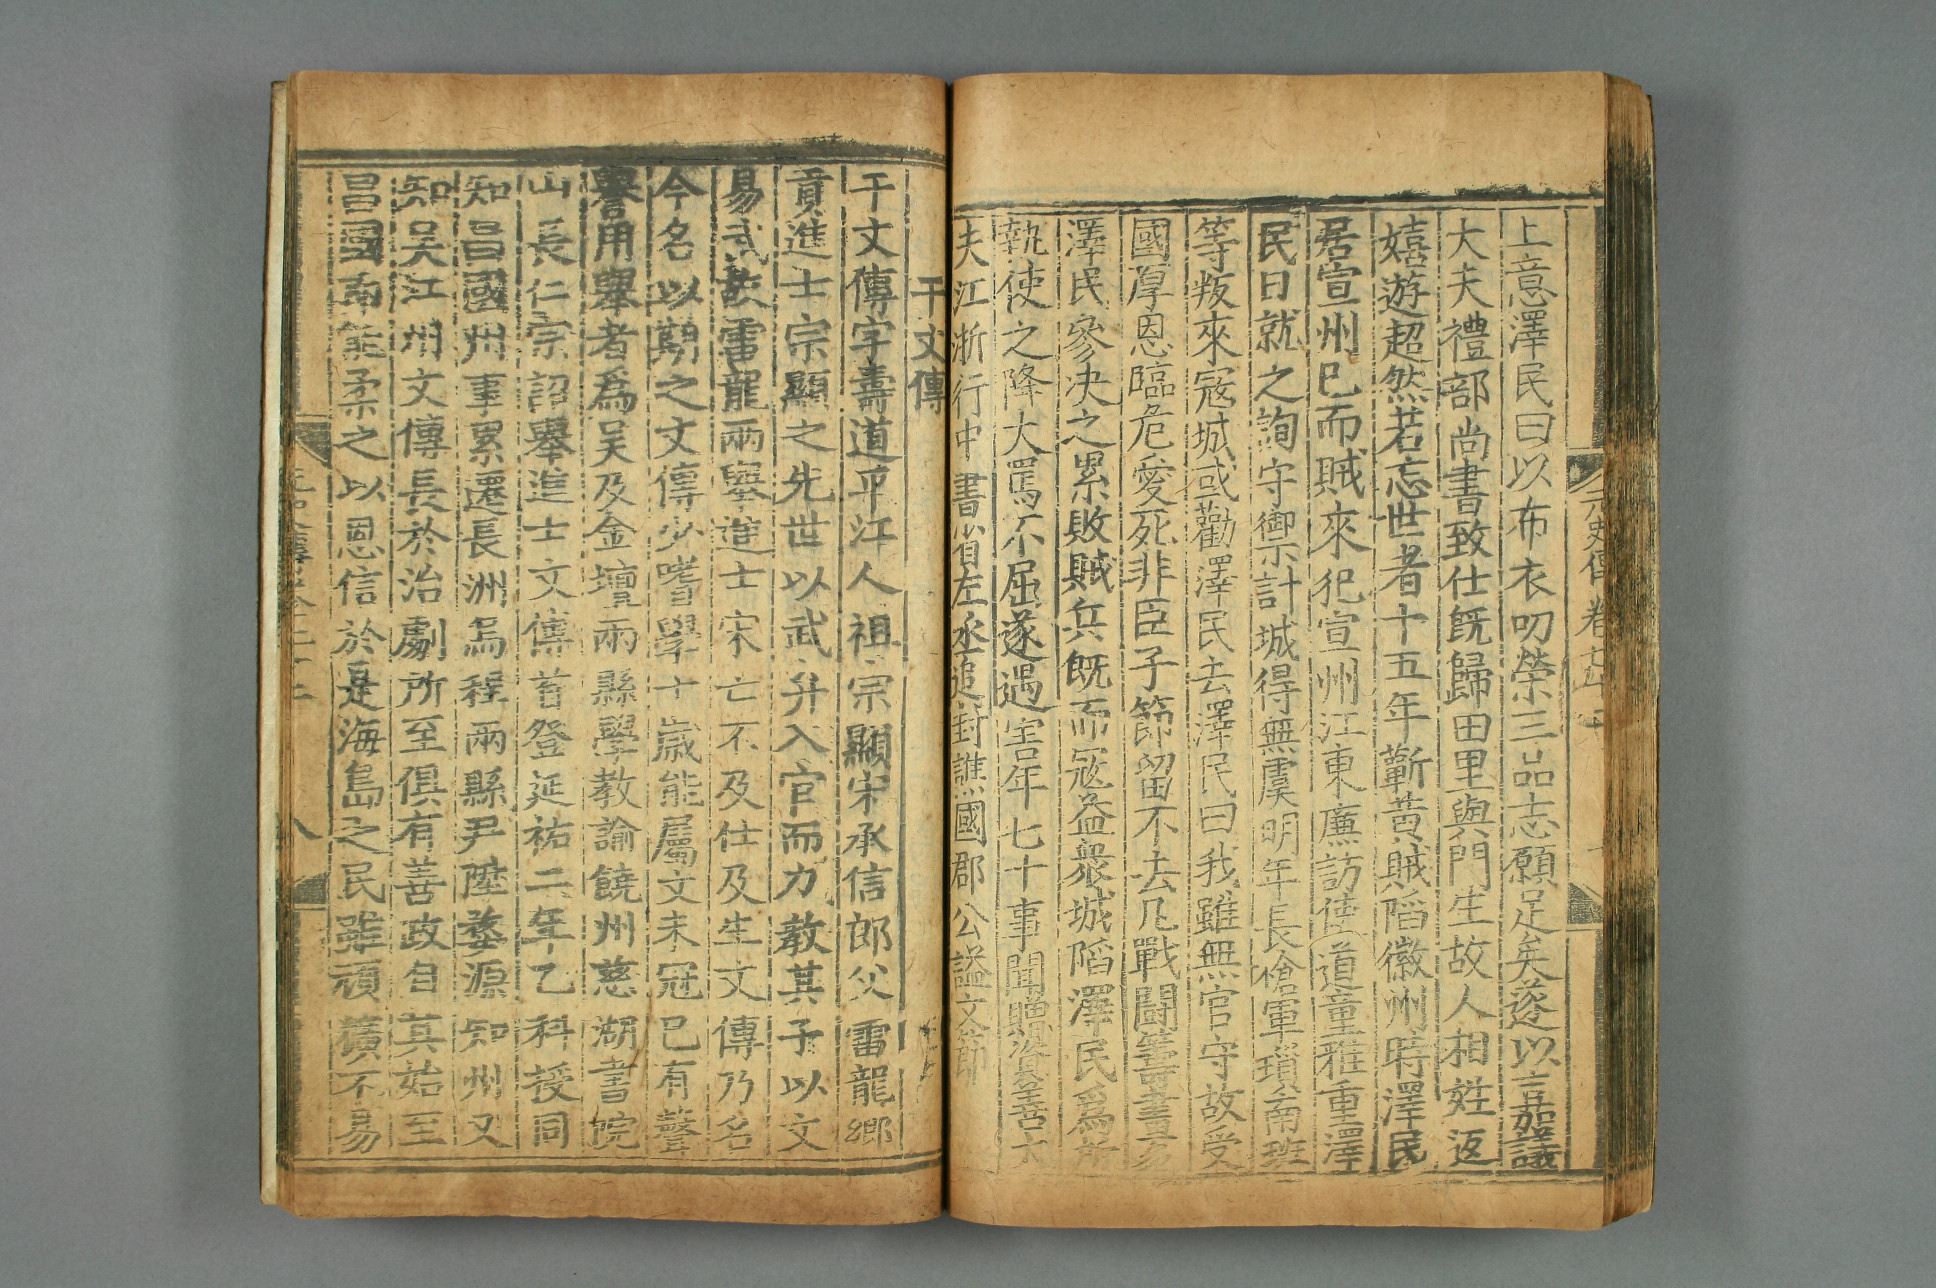 元史傳卷七十二
上意澤民曰以布衣叨榮三品志願足矣遂以嘉議
大夫禮部尚書致仕既歸田里與門生故人相姓返
嬉遊超然若忘世者十五年蘄黄賊陷徽州時澤民
居宣州巳而賊來犯宣州江東廉訪使道童雅重澤
民日就之詢守禦計城得無虞明年長槍軍瑣南班
等叛來寇城或勸澤民去澤民曰我雖無官守故受
國厚恩臨危愛死非臣子節留不去凡戰鬪籌畫多
澤民參决之累敗賊兵既而寇益衆城陷澤民爲所
執使之降大罵不屈遂遇害年七十事聞贈資善大
夫江浙行中書省左丞追封譙國郡公謚文節
干文傳
干文傳字壽道平江人祖宗顯宋承信郎父雷龍鄉
貢進士宗顯之先世以武弁入官而力教其子以文
易武故雷龍兩舉進士宋亡不及仕及生文傳乃名
今名以期之文傳少嗜學十歳能屬文未冠巳有聲
譽用舉者爲吴及金壇兩縣學教諭饒州慈湖書院
山長仁宗詔舉進士文傳首登延祐二年乙科授同
知昌國州事累遷長洲烏程兩縣尹陞婺源知州又
知吴江州文傳長於治劇所至俱有善政自其始至
昌國南能柔之以恩信於是海島之民雖頑獷不易
元史傳卷七十二
八